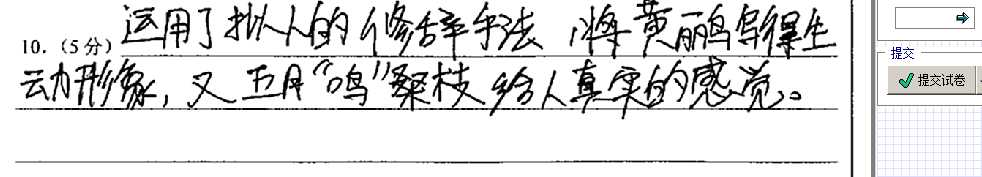 10.（5分）运用了拟人的修辞手法，将黄丽鸟写得生
动形象，又 五月“鸣”桑枝 给人真实的感觉。
提交
提交试卷